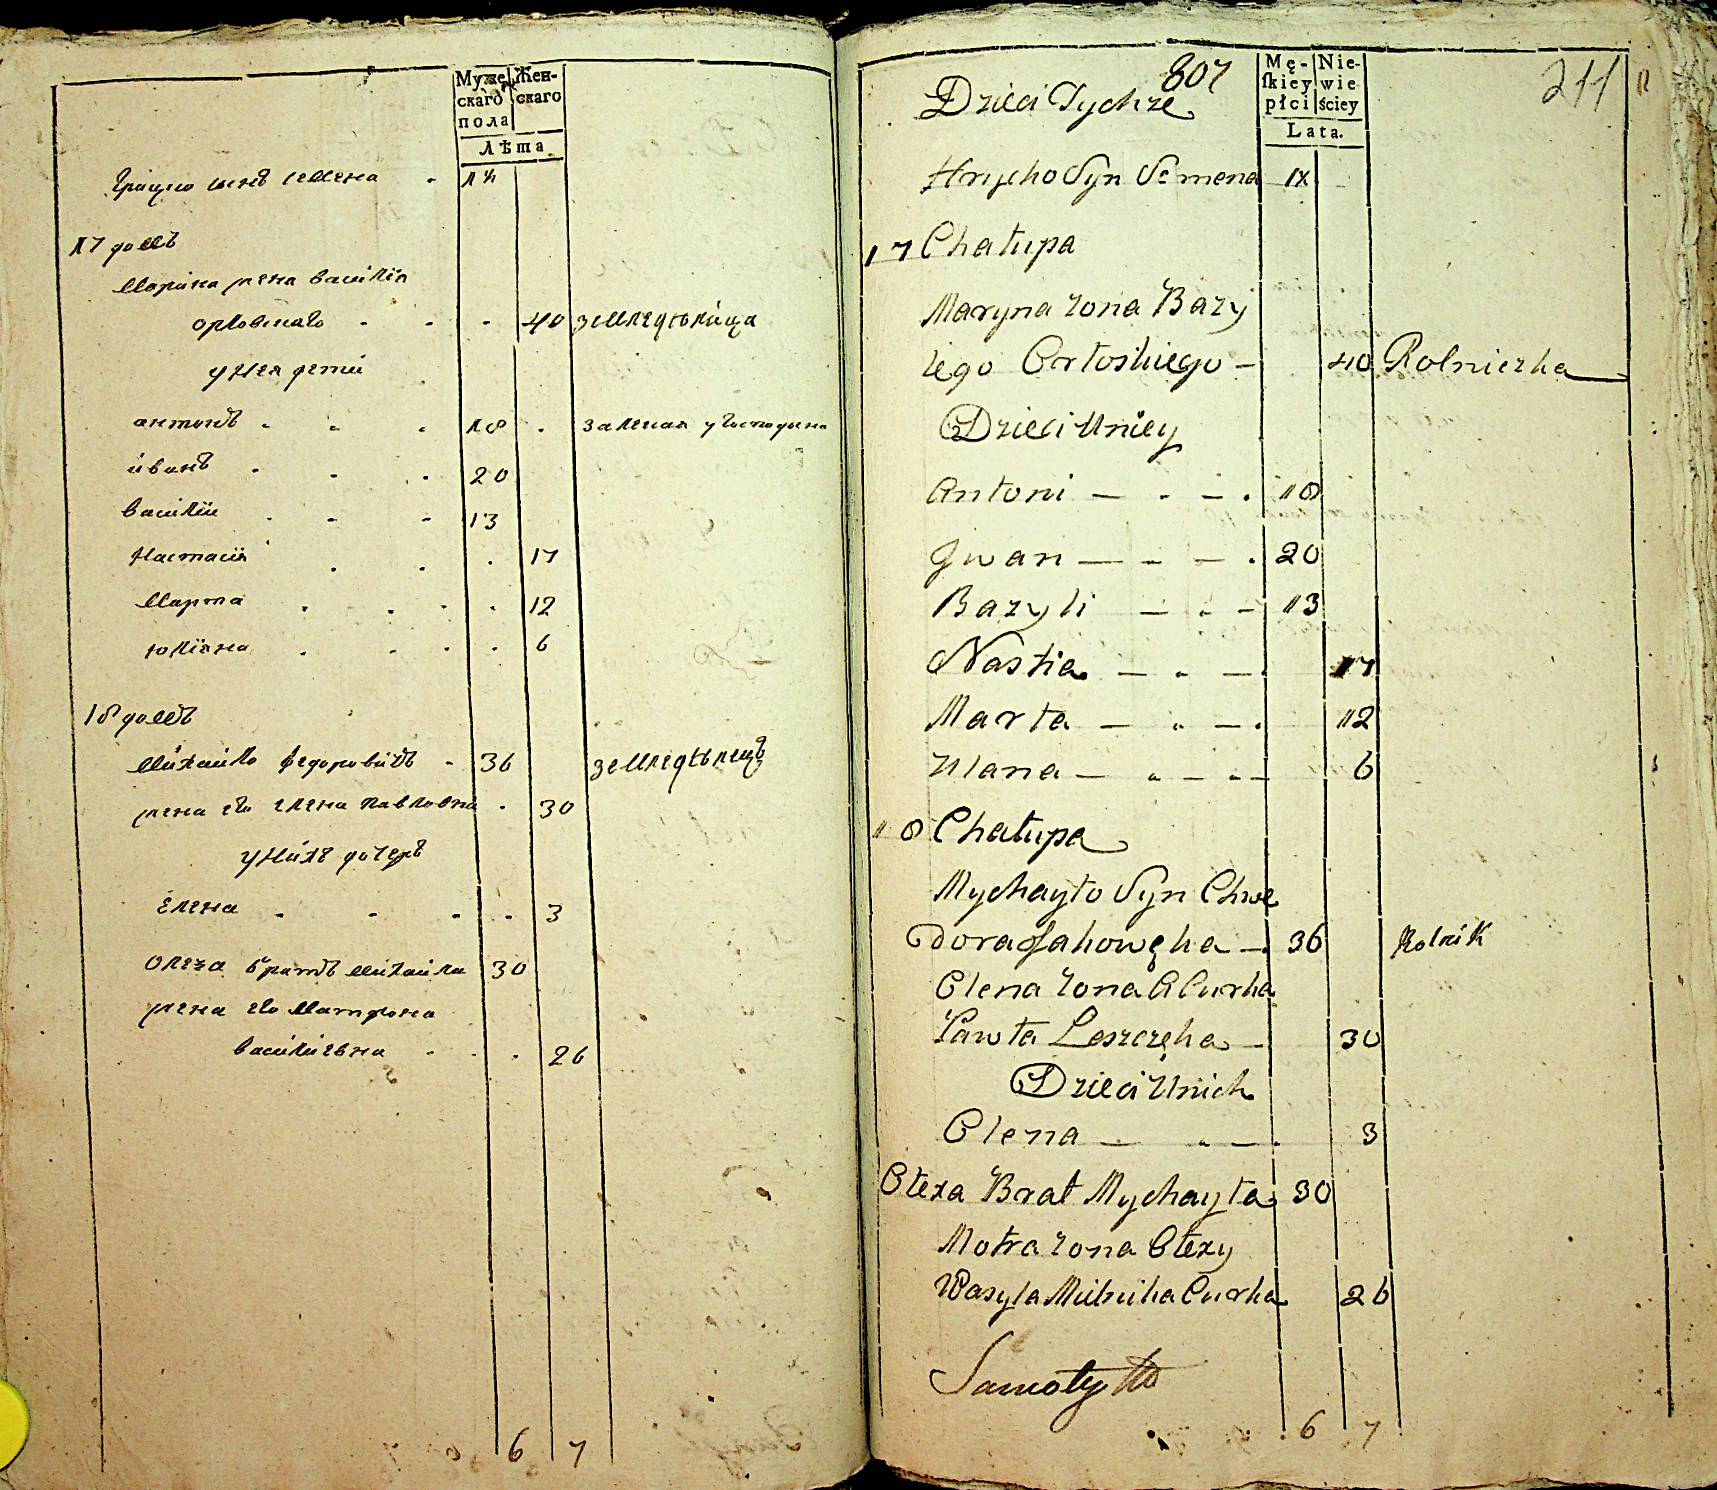 Муже- Жен-
скаго скаго
пола
Лѣта
Грицко сынъ семена 1½
17 домъ
Марина жена василия
орловскаго 40 земледѣлица
у нея дети
антонъ 18
иванъ 20
василий 13
Настасия 17
Марта 12
юлиана 6
18 домъ
михайло федоровичъ 36 земледѣлецъ
жена его елена павловна 30
у нихъ дочерь
елена 3
олеха братъ михайла 30
жена его матрона
василиевна 26
6 7
807
211
Mę- Nie-
skiey wie
płci ściey
Lata.
Dzieci Tychże
Hrycko Syn Semena
17 Chałupa
Maryna żona Bazy
lego Orłoskiego 40 Rolniczka
Dzieci Uniey
Antoni 18
Jwan 20
Bazyli 13
Nastia 17
Marta 12
Ulana 6
18 Chałupa
Mychayło Syn Chwe
dora 36 Rolnik
Olena żona A Curka
Pawła Leszczęka 30
Dzieci Unich
Olena 3
Ołexa Brat Mychayła 30
Motra żona Ołexy
Wasyla Milnika Curka 26
6 7